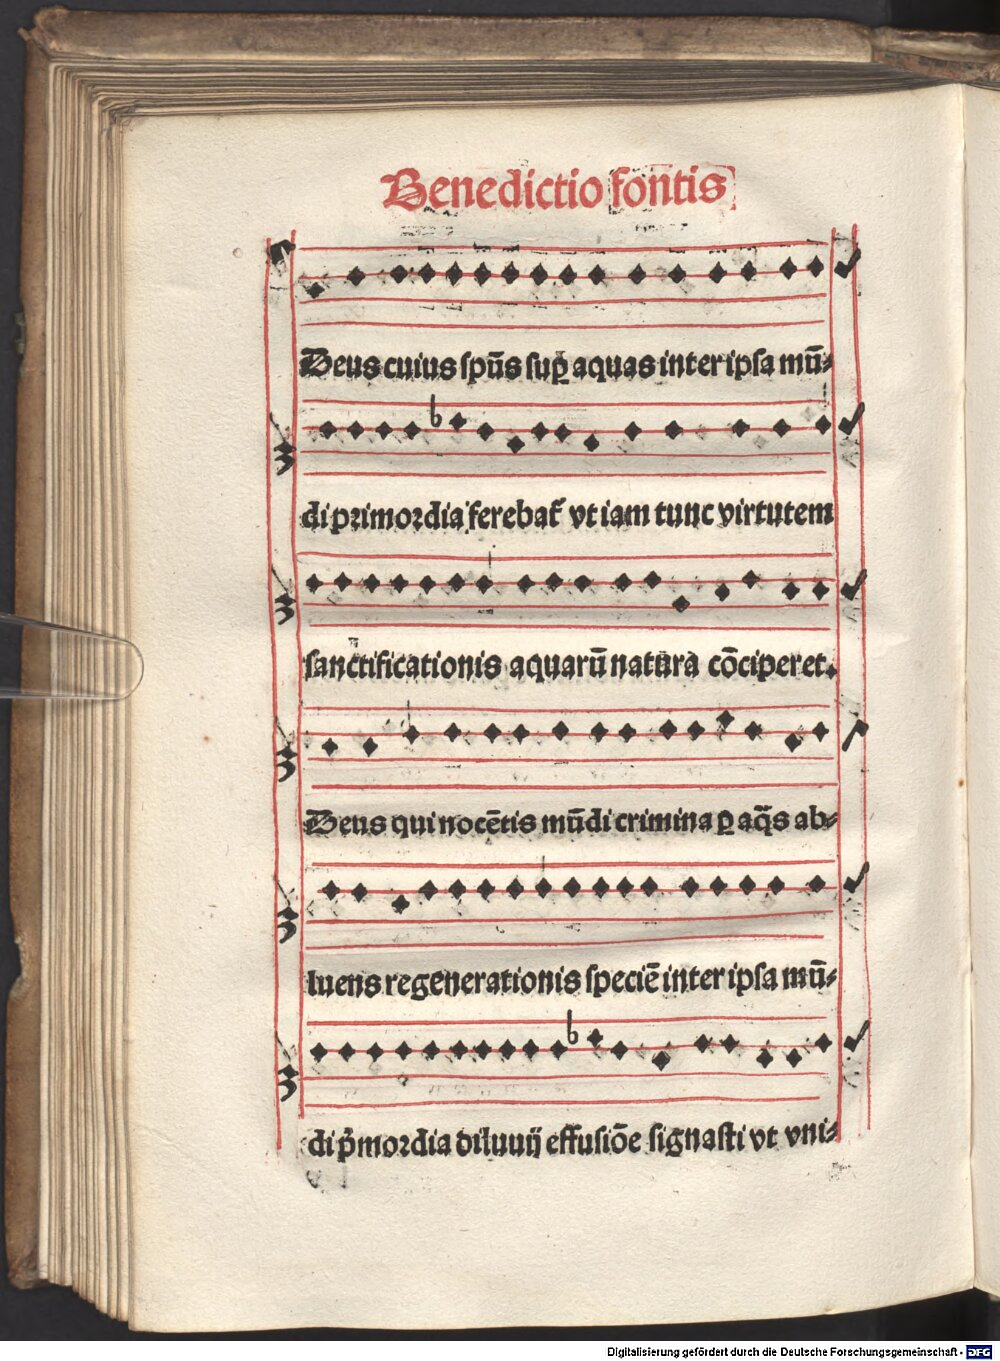 Benedictio fontis
Deus cuius spūs suꝑ aquas inter ipsa mū-
di primordia ferebat᷑ vt iam tunc virtutem
sanctificationis aquarū natura cōciperet.
Deus qui nocētis mūdi crimina ꝑ aq̄s ab-
luens regenerationis speciē inter ipsa mū-
di p̄mordia diluuij effusiōe signasti vt vni-
Digitalisierung gefördert durch die Deutsche Forschungsgemeinschaft - DFG